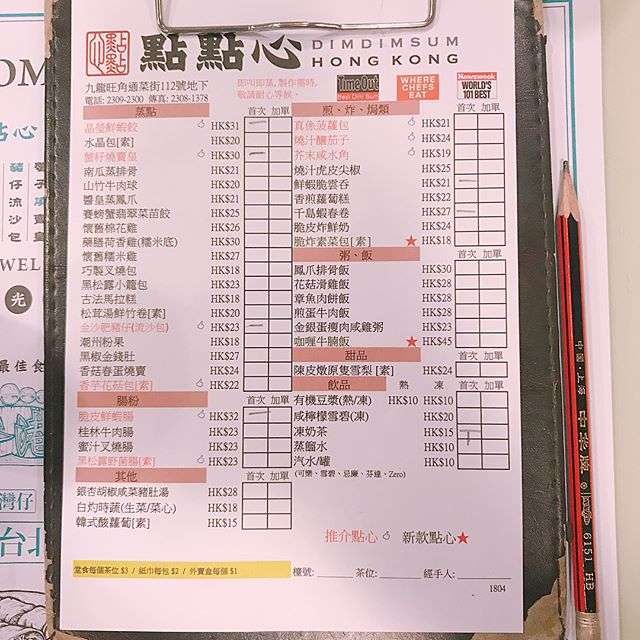 點點心 DIMDIMSUM HONG KONG
九龍旺角通菜街112號地下
電話: 2309-2300 傳真: 2308-1378
即叫即蒸,製作需時,
敬請耐心等候。
TimeOut
WHERE CHEFS EAT
Newsweek WORLD'S 101 BEST
蒸點 首次 加單
晶瑩鮮蝦餃 HK$31
水晶包[素] HK$20
蟹籽燒賣皇 HK$30
南瓜蒸排骨 HK$21
山竹牛肉球 HK$20
醬皇蒸鳳爪 HK$21
賽螃蟹翡翠菜苗餃 HK$25
懷舊棉花雞 HK$26
藥膳荷香雞(糯米底) HK$30
懷舊糯米雞 HK$27
巧製叉燒包 HK$18
黑松露小籠包 HK$21
古法馬拉糕 HK$18
松茸湯鮮竹卷[素] HK$20
金沙肥豬仔(流沙包) HK$23
潮州粉果 HK$18
黑椒金錢肚 HK$27
香菇春蛋燒賣 HK$24
香芋花菇包[素] HK$22
腸粉 首次 加單
脆皮鮮蝦腸 HK$32
桂林牛肉腸 HK$23
蜜汁叉燒腸 HK$23
黑松露野菌腸[素] HK$23
其他 首次 加單
銀杏胡椒咸菜豬肚湯 HK$28
白灼時蔬(生菜/菜心) HK$18
韓式酸蘿蔔[素] HK$15
煎、炸、焗類 首次 加單
真係菠蘿包 HK$21
燒汁釀茄子 HK$24
芥末咸水角 HK$19
燒汁虎皮尖椒 HK$25
鮮蝦脆雲吞 HK$21
香煎蘿蔔糕 HK$21
千島蝦春卷 HK$27
脆皮炸鮮奶 HK$24
脆炸素菜包[素] ★ HK$18
粥、飯 首次 加單
鳳爪排骨飯 HK$30
花菇滑雞飯 HK$28
章魚肉餅飯 HK$28
煎蛋牛肉飯 HK$28
金銀蛋瘦肉咸雞粥 HK$23
咖喱牛腩飯 ★ HK$45
甜品 首次 加單
陳皮燉原隻雪梨[素] HK$24
飲品 熱 凍 首次 加單
有機豆漿(熱/凍) HK$10 HK$10
咸檸檬雪碧(凍) HK$20
凍奶茶 HK$15
蒸餾水 HK$10
汽水/罐 HK$10
(可樂、雪碧、忌廉、芬達、Zero)
推介點心 新款點心★
堂食每個茶位 $3 / 紙巾每包 $2 / 外賣盒每個 $1
檯號: 茶位: 經手人:
1804
中國·上海 中華牌 6151 HB
點心
光
最佳食
灣仔
台北